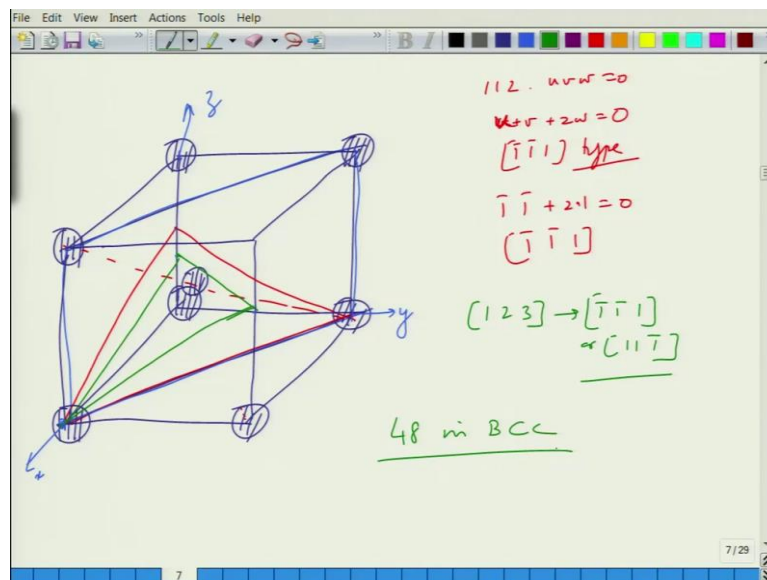 File Edit View Insert Actions Tools Help
B I
z
y
x
112. uvw = 0
u+v + 2w = 0
[1̅ 1̅ 1] type
1̅ 1̅ + 2.1 = 0
[1̅ 1̅ 1]
[1 2 3] → [1̅ 1̅ 1]
or [1 1 1̅]
48 in BCC
7/29
7